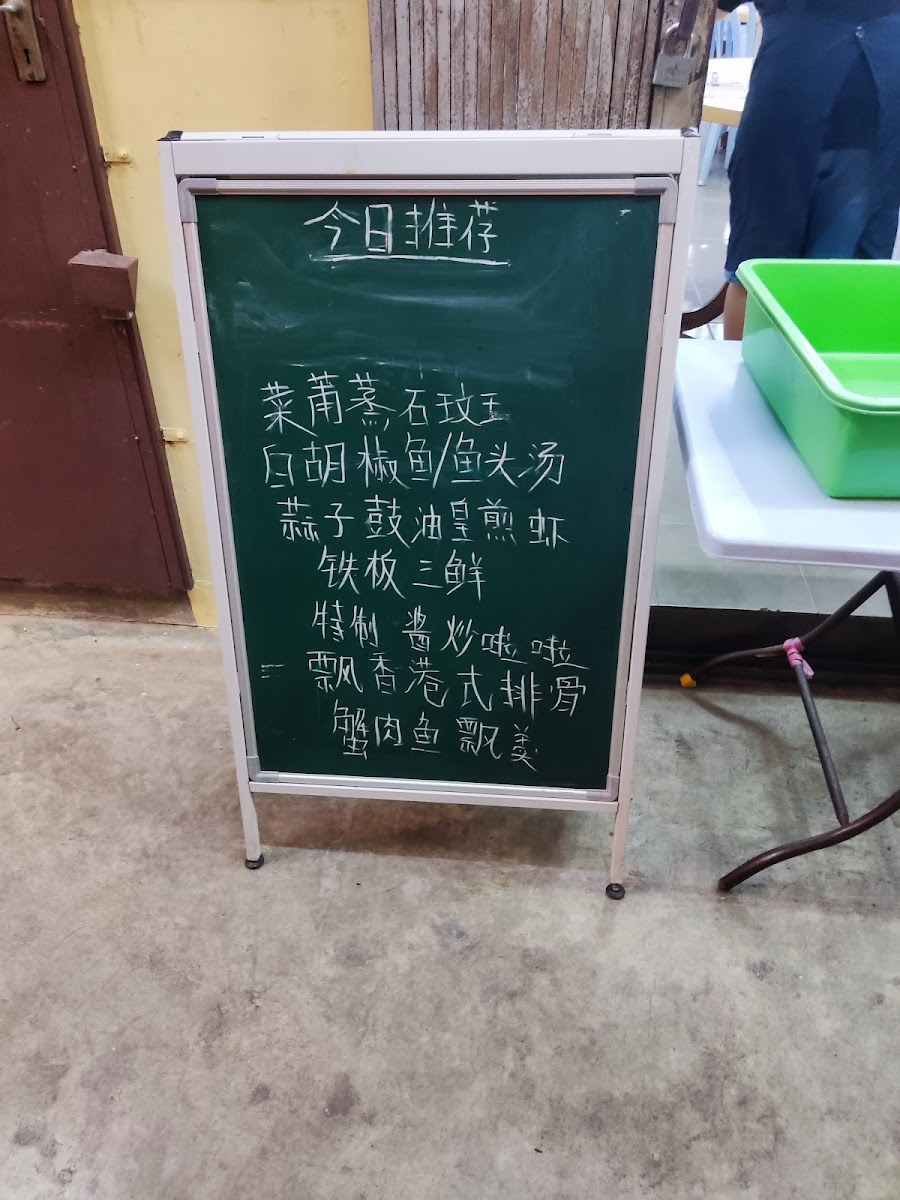 今日推荐
菜莆蒸石玟王
白胡椒鱼/鱼头汤
蒜子鼓油皇煎虾
铁板三鲜
特制酱炒啦啦
飘香港式排骨
蟹肉鱼飘羹